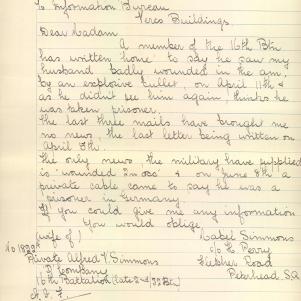 To Information Bureau
Verco Buildings
Dear Madam
A member of the 16th Btn
has written home to say he saw my
husband badly wounded in the arm,
by an explosive bullet, on April 11th &
as he didn't see him again, thinks he
was taken prisoner.
The last three mails have brought me
no news, the last letter being written on
April 5th.
The only news the military have supplied
is "wounded & on June 8th a
private cable came to say he was a
prisoner in Germany.
If you could give me any information
You would oblige
(wife of) Mabel Simmons
No 1899 c/o G Perry
Private Alfred V Simmons Road
D Company Peterhead S.A
16th Battalion (late 2nd/32 Btn)
A. I. F.